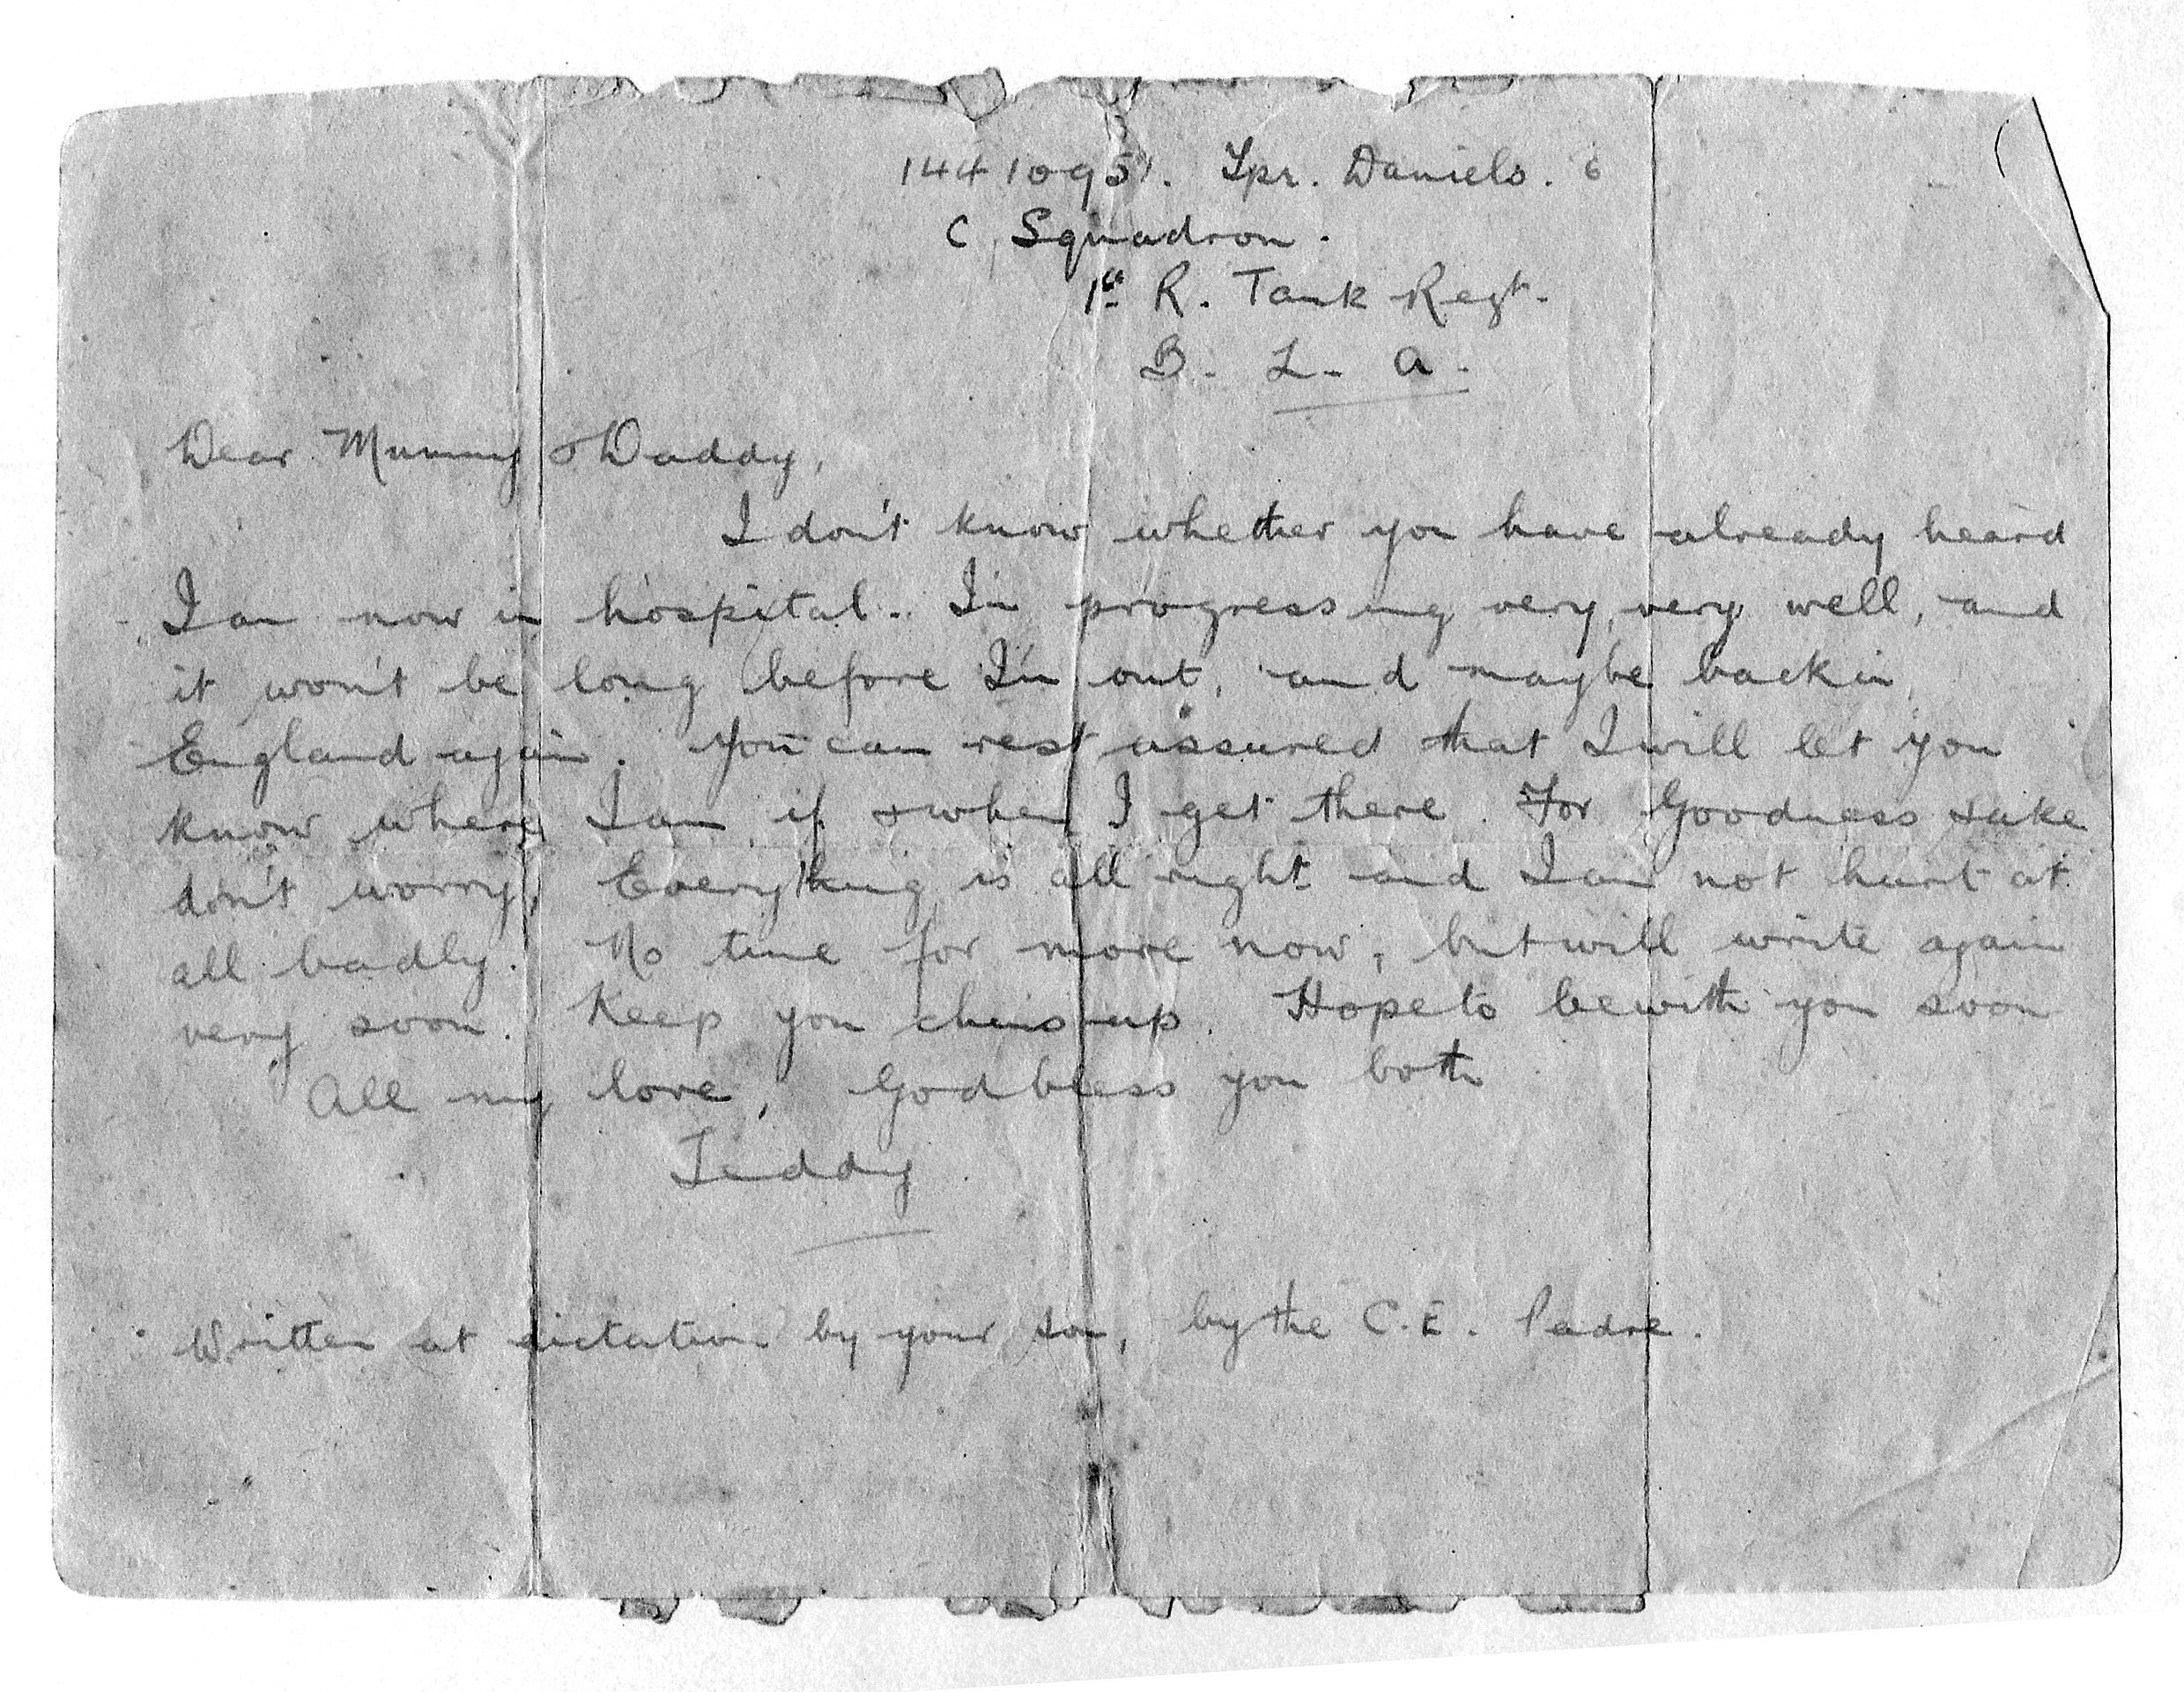 14410951. Tpr. Daniels. 6
C Squadron.
1st R. Tank Regt.
B. L. A.
Dear Mummy & Daddy,
I don't know whether you have already heard
I am now in hospital. I'm progressing very, very well, and
it won't be long before I'm out, and maybe back in
England again. You can rest assured that I will let you
know where I am, if & when I get there. For Goodness sake
don't worry, Everything is all right and I am not hurt at
all badly. No time for more now, but will write again
very soon. Keep you chins up. Hope to be with you soon
All my love, God bless you both
Teddy
Written at dictation by your son, by the C.E. Padre.